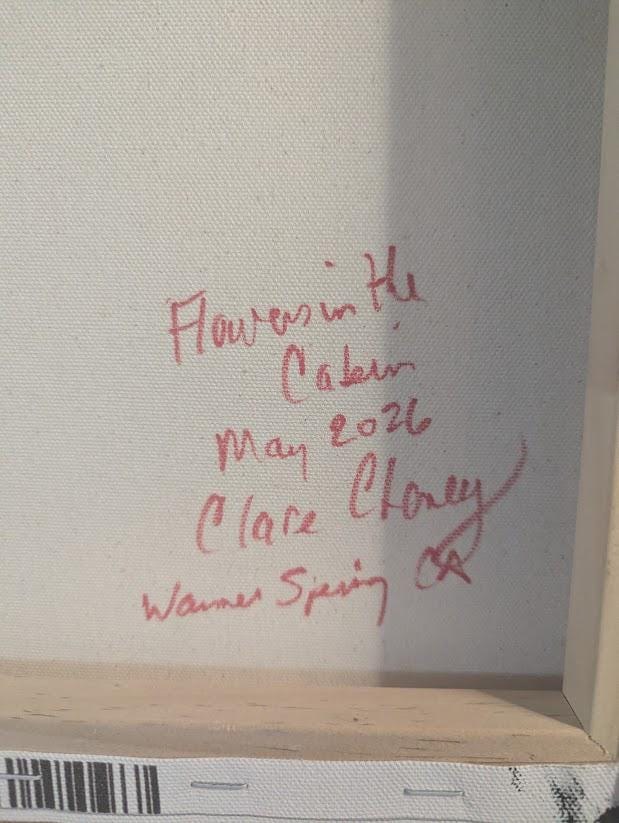 Flowers in the
Cabin
May 2026
Clare Choney
Warner Spring CA